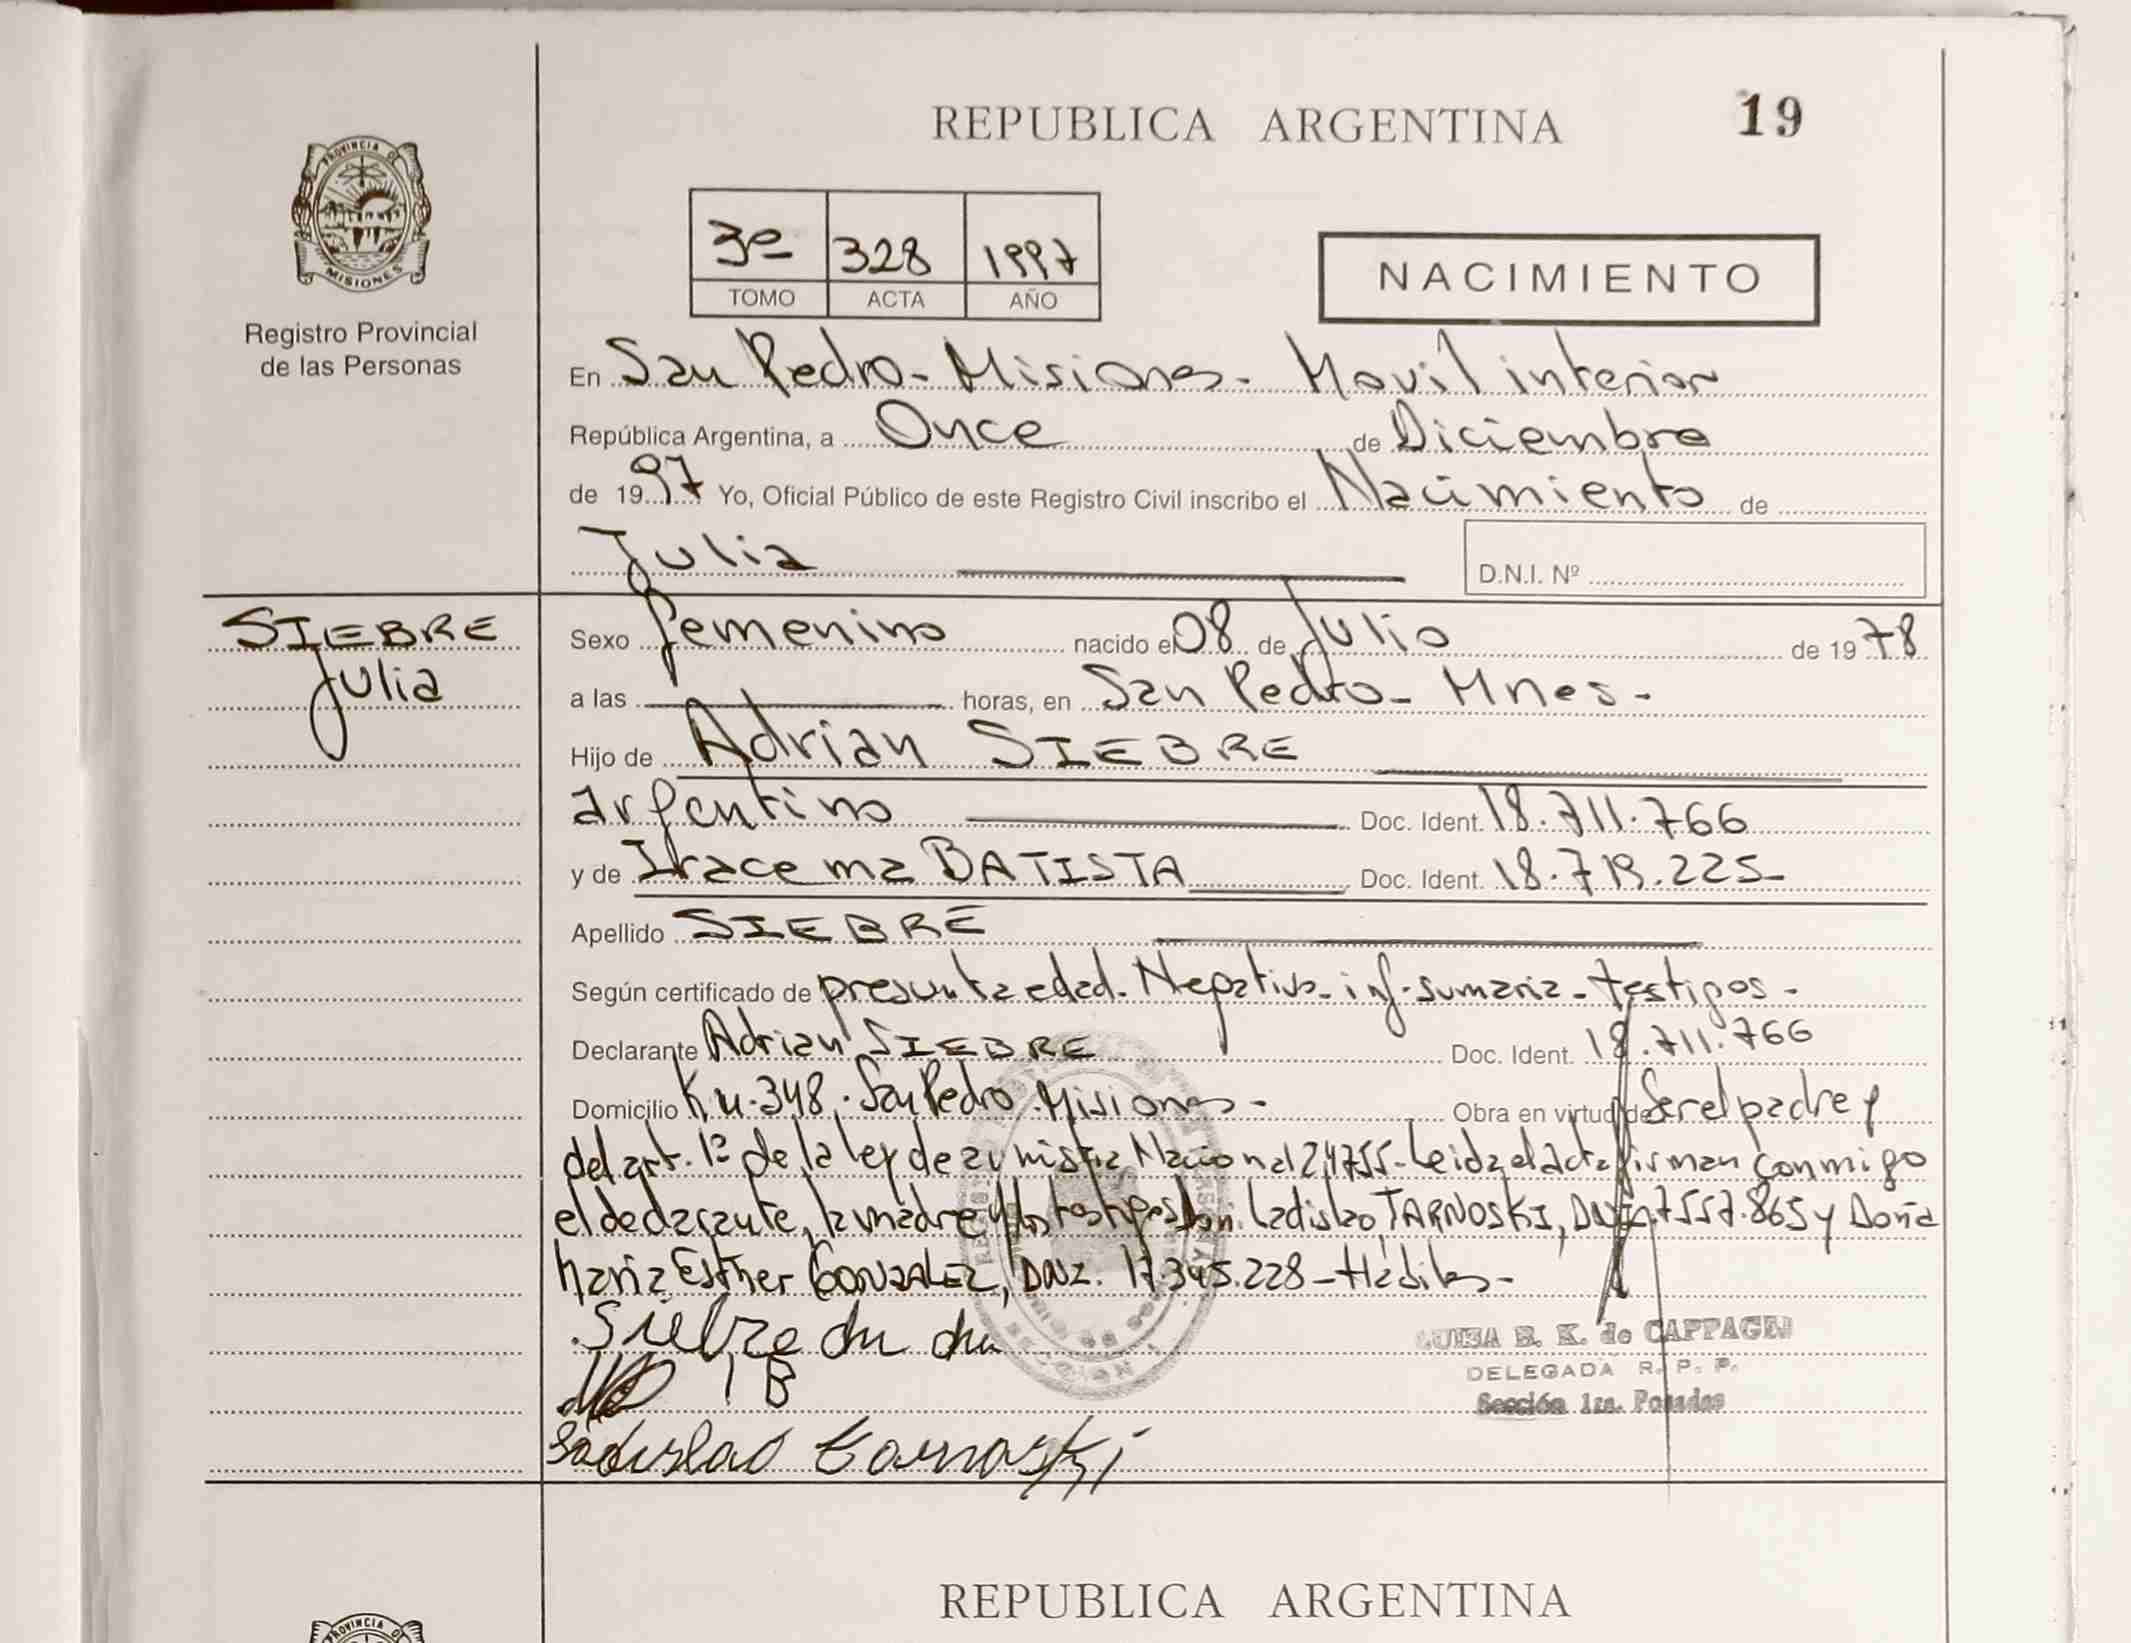 REPUBLICA ARGENTINA 19
PROVINCIA DE
MISIONES
Registro Provincial
de las Personas
3º 328 1997
TOMO ACTA AÑO
NACIMIENTO
En San Pedro - Misiones - Movil interior
República Argentina, a Once de Diciembre
de 1997 Yo, Oficial Público de este Registro Civil inscribo el Nacimiento de
Julia
D.N.I. Nº
SIEBRE
Julia
Sexo femenino nacido el 08 de Julio de 1978
a las horas, en San Pedro - Mnes -
Hijo de Adrian SIEBRE
argentino Doc. Ident. 18.711.766
y de Iracema BATISTA Doc. Ident. 18.719.225
Apellido SIEBRE
Según certificado de presunta edad - Negativa - inf. sumaria - testigos -
Declarante Adrian SIEBRE Doc. Ident. 18.711.766
Domicilio Km. 348. San Pedro Misiones - Obra en virtud de Ser el padre y
del art. 1º de la ley de amnistia Nacional 24755 - Leida el acta firman conmigo
el declarante, la madre y los testigos Don Ladislao TARNOSKI, DNI. 7557.865 y Doña
Maria Esther GONZALEZ, DNI. 17.345.228 - Hábiles -
Siebre
I B
Ladislao Tarnoski
DELEGADA R. P. P.
Sección 1ra. Posadas
REPUBLICA ARGENTINA
PROVINCIA DE